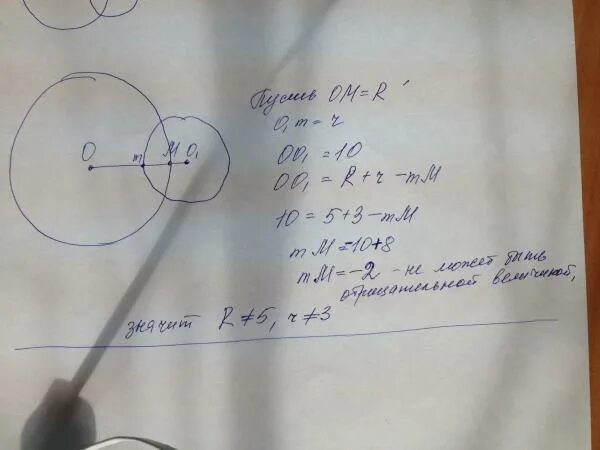 O m M O₁
Пусть OM = R
O₁m = r
OO₁ = 10
OO₁ = R + r - mM
10 = 5 + 3 - mM
mM = -10 + 8
mM = -2 - не может быть
отрицательной величиной,
значит R ≠ 5, r ≠ 3